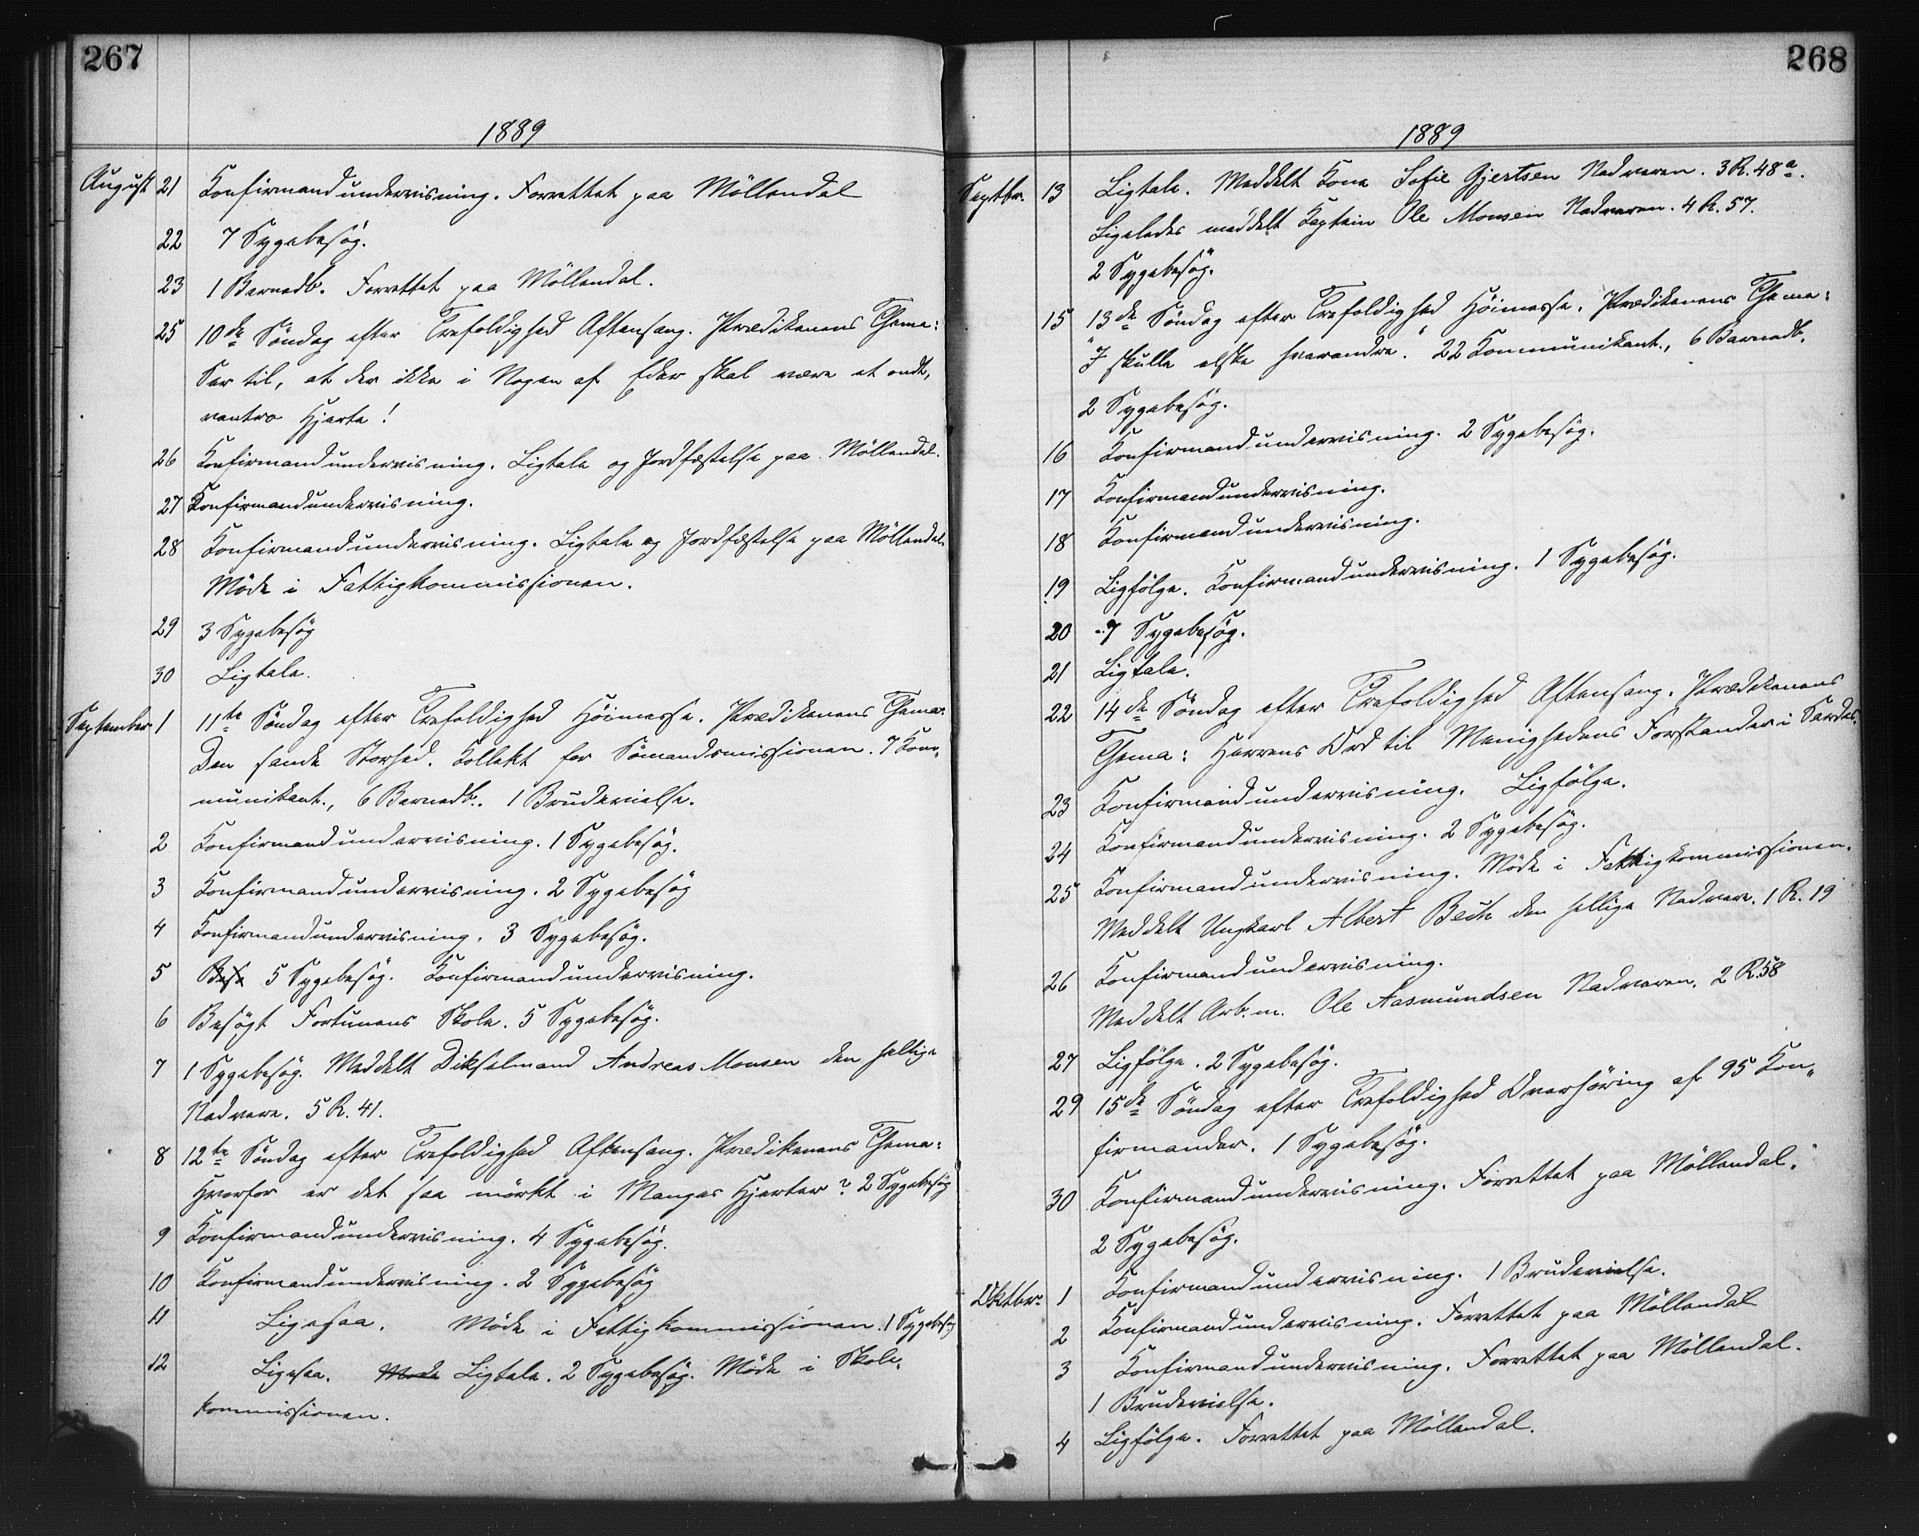 267
1889
August 21 Konfirmandundervisning. Forrettet paa Möllendal
22 7 Sygebesög.
23 1 Barnedb. Forrettet paa Möllendal.
25 10de Söndag efter Trefoldighed Aftensang. Prædikenens Thema:
Ser til, at der ikke i Nogen af Eder skal være et ondt,
vantro Hjerte!
26 Konfirmandundervisning. Ligtale og Jordfæstelse paa Möllendal.
27 Konfirmandundervisning.
28 Konfirmandundervisning. Ligtale og Jordfæstelse paa Möllendal.
Möde i Fattigkommissionen.
29 3 Sygebesög
30 Ligtale.
September 1 11te Söndag efter Trefoldighed Höimesse. Prædikenens Thema:
Den sande Storhed. Kollekt for Sömandsmissionen. 7 Kom„
munikant., 6 Barnedb. 1 Brudevielse.
2 Konfirmandundervisning. 1 Sygebesög.
3 Konfirmandundervisning. 2 Sygebesög
4 Konfirmandundervisning. 3 Sygebesög.
5 5 Sygebesög. Konfirmandundervisning.
6 Besögt Fortunens Skole. 5 Sygebesög.
7 1 Sygebesög. Meddelt Dikselmand Andreas Monsen den hellige
Nadvere. 5 R. 41.
8 12te Söndag efter Trefoldighed Aftensang. Prædikenens Thema:
Hvorfor er det saa mörkt i Manges Hjerter? 2 Sygebesög
9 Konfirmandundervisning. 4 Sygebesög.
10 Konfirmandundervisning. 2 Sygebesög
11 Ligesaa. Möde i Fattigkommissionen. 1 Sygebesög
12 Ligesaa. Möde Ligtale. 2 Sygebesög. Möde i Skole„
kommissionen.
268
1889
Septbr. 13 Ligtale. Meddelt Kone Sofie Gjertsen Nadveren. 3 R. 48a.
Ligeledes meddelt Kaptein Ole Monsen Nadveren. 4 R. 57.
2 Sygebesög.
15 13de Söndag efter Trefoldighed Höimesse. Prædikenens Thema:
"I skulle elske hverandre." 22 Kommunikant., 6 Barnedb.
2 Sygebesög.
16 Konfirmandundervisning. 2 Sygebesög.
17 Konfirmandundervisning.
18 Konfirmandundervisning.
19 Ligfölge. Konfirmandundervisning. 1 Sygebesög.
20 7 Sygebesög.
21 Ligtale.
22 14de Söndag efter Trefoldighed Aftensang. Prædikenens
Thema: Herrens Ord til Menighedens Forstander i Sardes.
23 Konfirmandundervisning. Ligfölge.
24 Konfirmandundervisning. 2 Sygebesög.
25 Konfirmandundervisning. Möde i Fattigkommissionen.
Meddelt Ungkarl Albert Bech den hellige Nadvere. 1 R. 19
26 Konfirmandundervisning.
Meddelt Arb.m. Ole Aasmundsen Nadveren. 2 R. 58
27 Ligfölge. 2 Sygebesög.
29 15de Söndag efter Trefoldighed Overhöring af 95 Kon„
firmander. 1 Sygebesög.
30 Konfirmandundervisning. Forrettet paa Möllendal.
2 Sygebesög.
Oktbr. 1 Konfirmandundervisning. 1 Brudevielse.
2 Konfirmandundervisning. Forrettet paa Möllendal
3 Konfirmandundervisning. Forrettet paa Möllendal.
1 Brudevielse.
4 Ligfölge. Forrettet paa Möllendal.